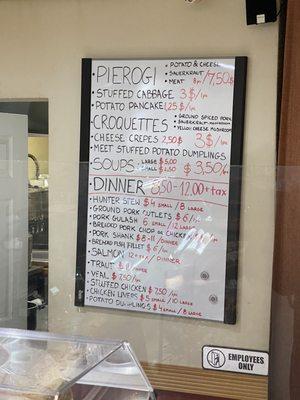 • POTATO & CHEESE
• PIEROGI • SAUERKRAUT
• MEAT 8/pc /7,50$
• STUFFED CABBAGE 3$/pc
• POTATO PANCAKE 1,25$/pc
CROQUETTES • GROUND SPICED PORK
• SAUERKRAUT-MUSHROOM
• YELLOW CHEESE MUSHROOM
• CHEESE CREPES 2,50$ 3$/pc
• MEET STUFFED POTATO DUMPLINGS
• SOUPS: LARGE $5,00
SMALL $2,50 $3,50/pc
DINNER 8,50-12,00+tax
• HUNTER STEW $4 SMALL/8 LARGE
• GROUND PORK CUTLETS $6/pc
• PORK GULASH 6 SMALL/12 LARGE
• BREADED PORK CHOP or CHICKEN
• PORK SHANK $8-11/DINNER
• BREADED FISH FILLET $6/pc
• SALMON 12+tax/DINNER
• TRAUT
• VEAL $7,50/pc
• STUFFED CHICKEN $7,50/pc
• CHICKEN LIVERS $5 SMALL/10 LARGE
• POTATO DUMPLINGS $4 SMALL/8 LARGE
EMPLOYEES
ONLY